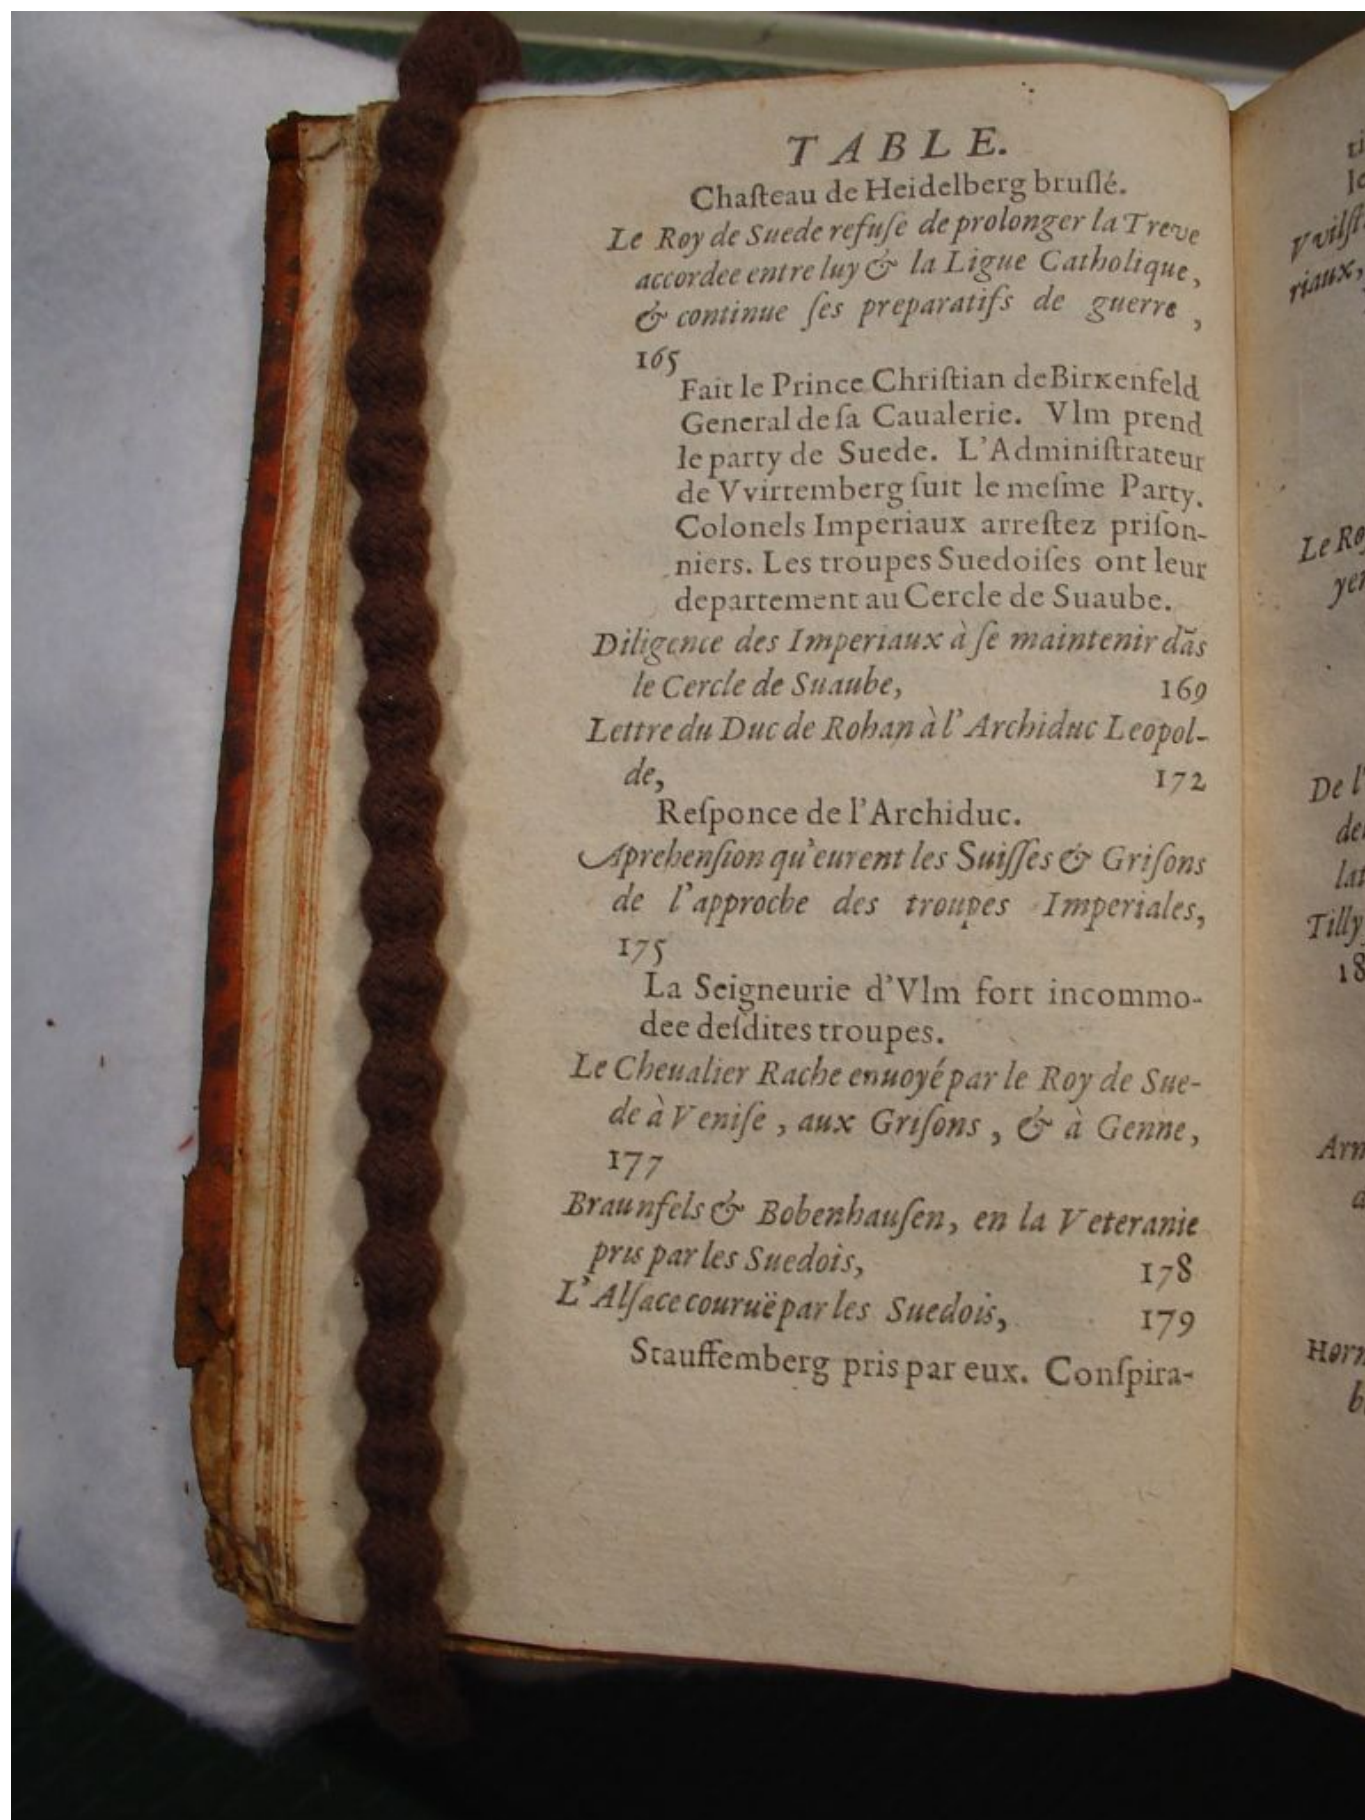 TABLE.
Chaſteau de Heidelberg bruſlé.
Le Roy de Suede refuſe de prolonger la Treve
accordee entre luy & la Ligue Catholique,
& continue ſes preparatifs de guerre,
165
Fait le Prince Chriſtian de Birxenfeld
General de ſa Caualerie. Vlm prend
le party de Suede. L'Adminiſtrateur
de Vvirtemberg ſuit le meſme Party.
Colonels Imperiaux arreſtez priſon-
niers. Les troupes Suedoiſes ont leur
departement au Cercle de Suaube.
Diligence des Imperiaux à ſe maintenir dãs
le Cercle de Suaube, 169
Lettre du Duc de Rohan à l'Archiduc Leopol-
de, 172
Reſponce de l'Archiduc.
Aprehenſion qu'eurent les Suiſſes & Griſons
de l'approche des troupes Imperiales,
175
La Seigneurie d'Vlm fort incommo-
dee deſdites troupes.
Le Cheualier Rache enuoyé par le Roy de Sue-
de à Veniſe, aux Griſons, & à Genne,
177
Braunfels & Bobenhauſen, en la Veteranie
pris par les Suedois, 178
L'Alſace couruë par les Suedois, 179
Stauffemberg pris par eux. Conſpira-
Vvilſt
riaux,
Le Ro
yer
De l'
de
lat
Tilly,
18
Arn
Horn
b